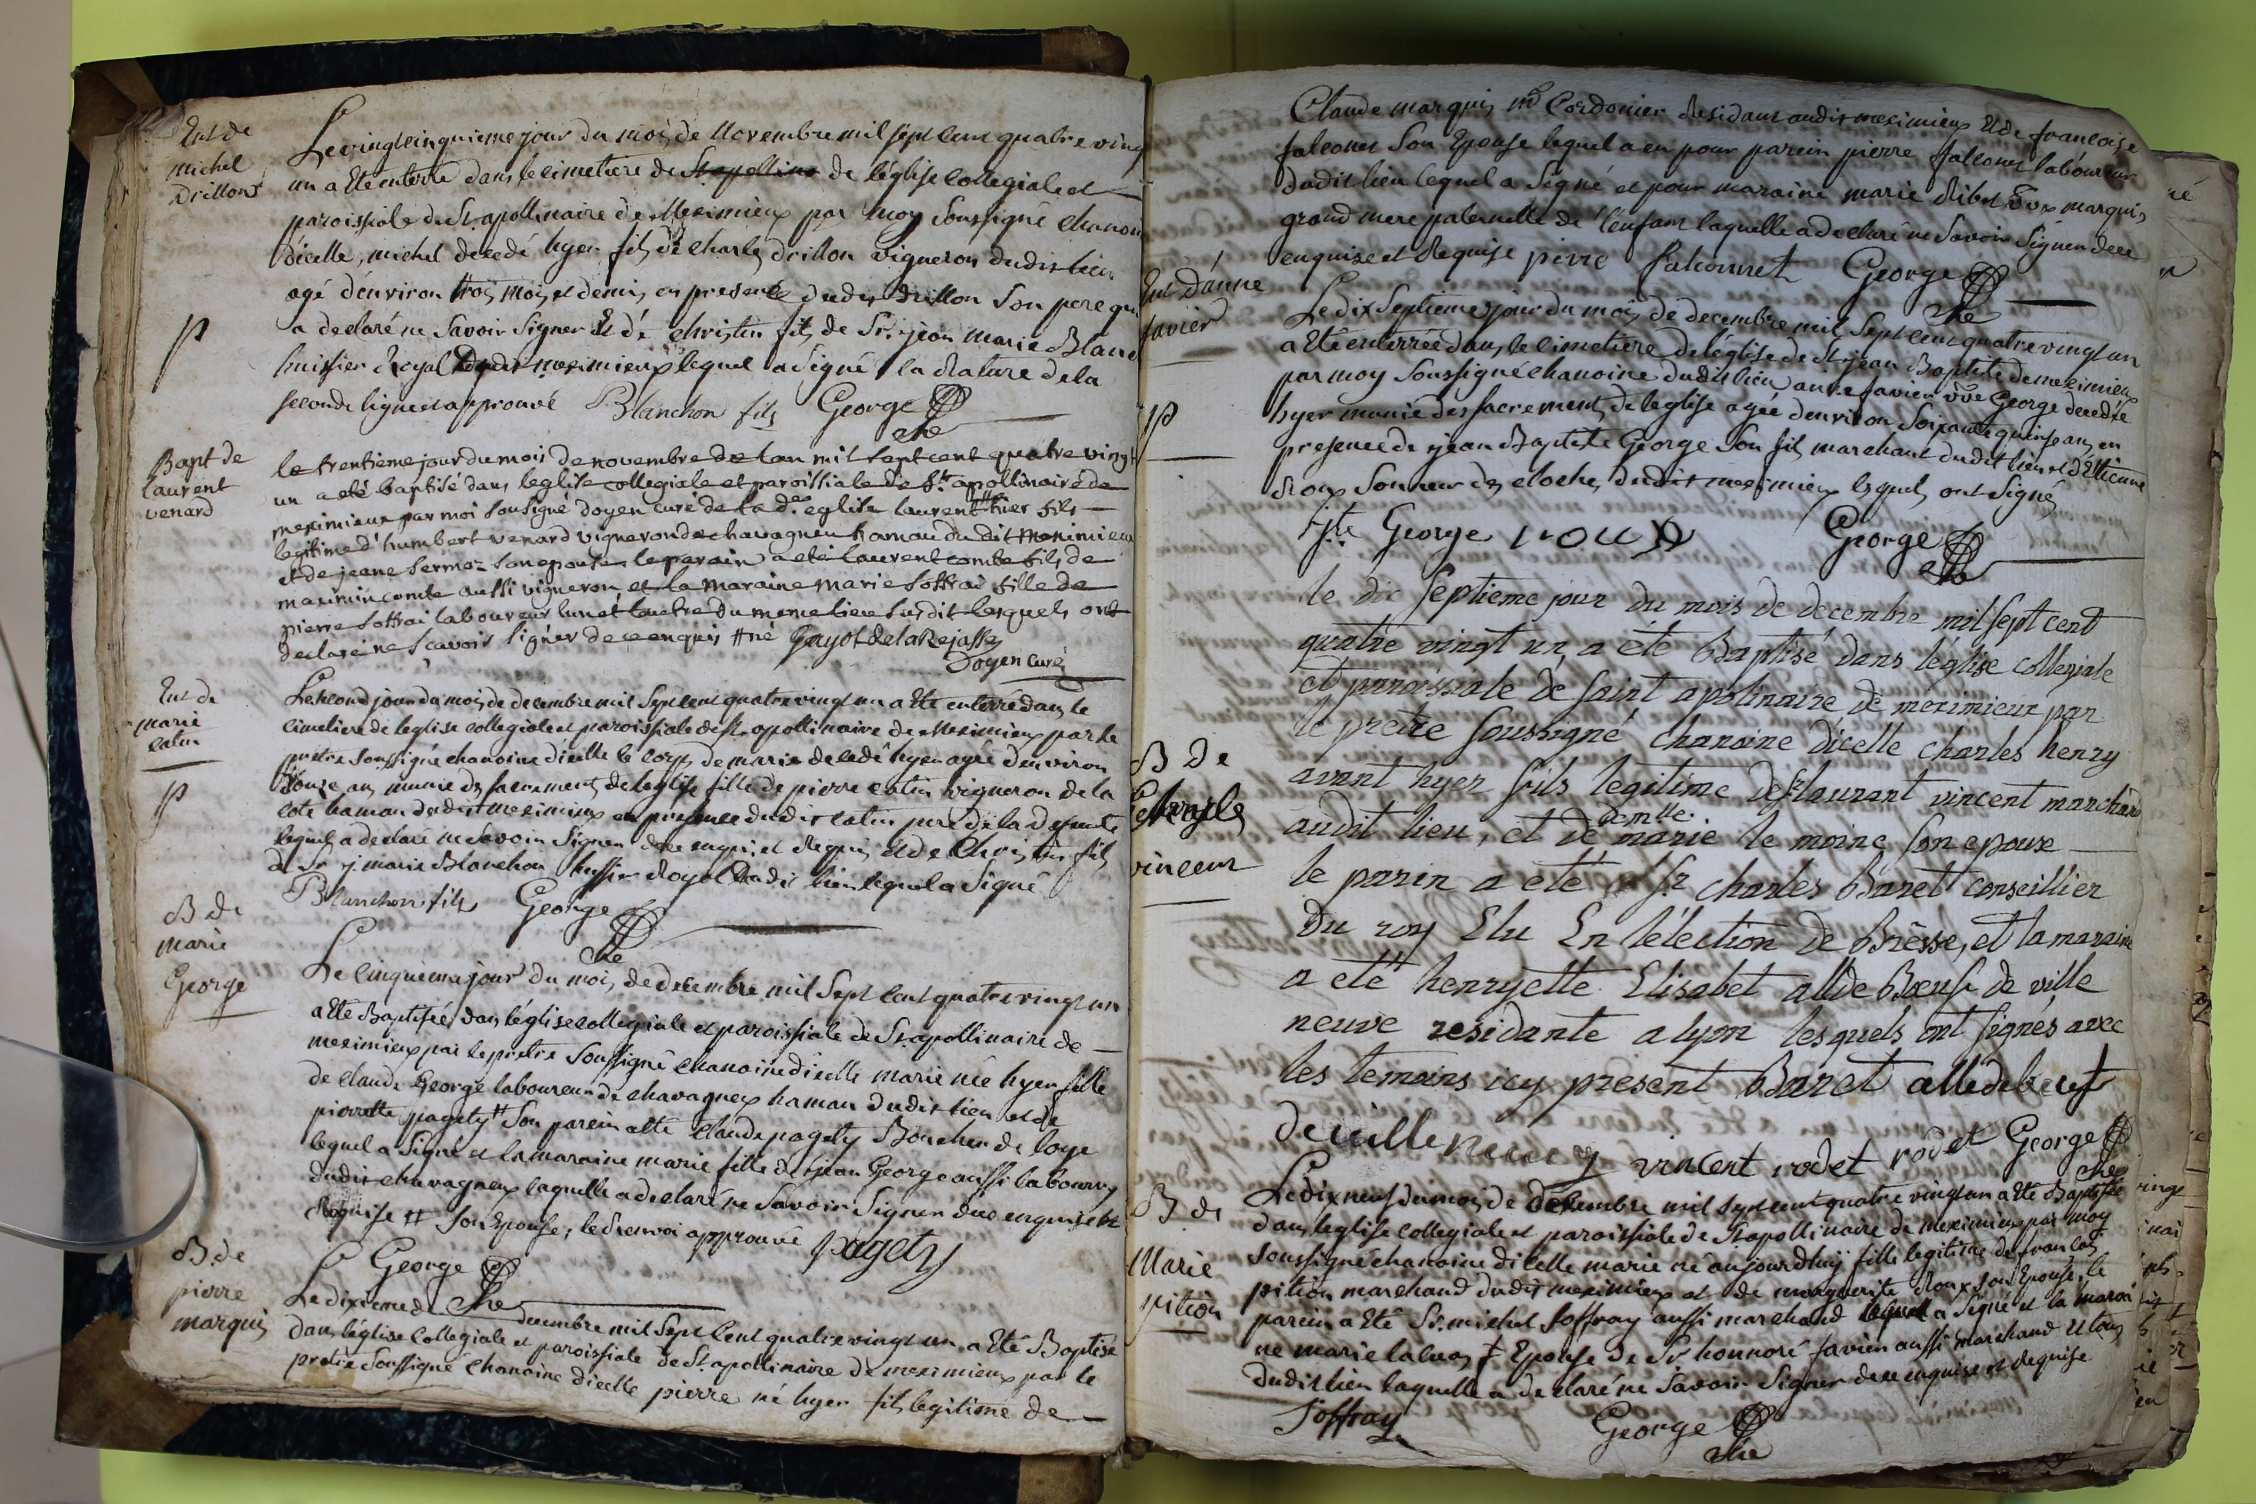 Ent de
michel
Drillon
Le vingt cinquieme jour du mois de Novembre mil sept cent quatre vingt
un a Eté enterré dans le cimetiere de St apollina de l'église Collegiale et
paroissiale de St. apollinaire de Meximieux par moy soussigné chanoin
d'icelle, michel decedé hyer fils de charles drillon vigneron dudit lieu
agé d'environ trois mois et demis en presence dudit drillon son pere qui
a declaré ne Savoir Signer Et dé Christin fils de Sr. jean marie Blanc
huissier Royal dudit meximieux lequel a Signé la Rature de la
seconde ligne est approuvé Blanchon fils George
che
Bapt de
laurent
venard
le trentieme jour du mois de novembre de lan mil sept cent quatre vingt
un a eté baptisé dans leglise collegiale et paroissiale de St apollinaire de
meximieux par moi sousigné doyen curé de la de. eglise laurent # hier fils
legitime d'humbert venard vigneron de chavagneu hamau dudit meximieux
et de jeane sermoz son epouse le parain a eté laurent comte fils de
maximin comte aussi vigneron et la maraine marie soffrai fille de
pierre soffrai laboureur lun et lautre du meme lieu susdit lesquels ont
declaré ne scavoir signer de ce enquis # né Guyot de la Rejasse
Doyen curé
Ent de
marie
catin
Le second jour du mois de decembre mil sept cent quatre vingt un a Eté enterré dans le
cimetiere de leglise collegiale et paroissiale de St. apollinaire de Meximieux par le
pretre soussigné chanoine dicelle le corps de marie decedé hyer agée d'environ
douze ans munie des sacrements de leglise fille de pierre catin vigneron de la
cote hamau dudit meximieux en presence dudit catin pere de la defunte
lequel a declaré ne savoir signer de ce enquis et Requis et de Christin fils
de Sr j. marie Blanchon huissier Royal dudit lieu lequel a signé
Blanchon fils George
che
B de
marie
George
Le cinquieme jour du mois de decembre mil sept cent quatre vingt un
a Eté Baptisée dans léglise collegiale et paroissiale de St. apollinaire de
meximieux par le pretre soussigné chanoine dicelle marie née hyer fille
de claude George laboureur de chavagneux hamau dudit lieu et de
pierrette pagety # Son parein a Eté claude pagety Boucher de loye
lequel a Signé et la maraine marie fille de jean George aussi laboureur
dudit chavagneux laquelle a declaré ne Savoir Signer de ce enquise et
Requise # Son Epouse, le Renvoi approuvé pagety
George
che
B. de
pierre
marquis
Le dixieme de decembre mil Sept Cent quatre vingt un a Eté Baptisé
dans léglise Collegiale et paroissiale de St. apollinaire de meximieux par le
pretre soussigné chanoine dicelle pierre né hyer fils legitime de
Claude marquis md Cordonier Residant audit meximieux Et de francoise
falconet Son Epouse lequel a eu pour parein pierre falconet laboureur
dudit lieu lequel a Signé et pour maraine marie Ribet vve marquis
grand mere paternelle de l'enfant laquelle a declaré ne Savoir Signer de ce
enquise et Requise pierre falconnet George
che
Ent d'anne
favier
Le dix septieme jour du mois de decembre mil Sept Cent quatre vingt un
a Eté enterrée dans le cimetiere de léglise de St. jean Baptiste de meximieux
par moy soussigné chanoine dudit lieu anne favier vve George decedée
hyer munie des sacrements de leglise agée d'environ soixante quinse ans en
presence de jean Baptiste George son fils marchand dudit lieu et d'Etienne
Roux Sonneur des cloches dudit meximieux lesquels ont signé
jte George roux George
che
B de
Charles
vincent
le dix septieme jour du mois de decembre mil sept cent
quatre vingt un a été Baptisé dans léglise collegiale
et paroissiale de saint apolinaire de meximieux par
le prêtre soussigné chanoine d'icelle charles henry
avant hyer fils legitime de sr laurant vincent marchand
audit lieu, et de demlle marie le moine son epouse
le parin a eté sr charles Baret conseillier
du roy Elu En l'élection de Bresse, et la maraine
a eté henryette Elisabet alldeBoeuf de ville
neuve residante a lyon lesquels ont signés avec
les temoins icy present Baret alledebeuf
devilleneuve vincent rodet rodet George
che
B de
Marie
pition
Le dix neuf du mois de decembre mil sept cent quatre vingt un a Eté Baptisée
dans leglise collegiale et paroissiale de St apollinaire de meximieux par moy
soussigné chanoine dicelle marie né aujourdhuy fille legitime de francois
pition marchand dudit meximieux et de marguerite Roux son Epouse, le
parein a Eté Sr. michel soffray aussi marchand lequel a signé et la marai
ne marie laluas Epouse de Sr honnoré favier aussi marchand Et tous
dudit lieu laquelle a declaré ne savoir Signer de ce enquise et Requise
Soffray George
che